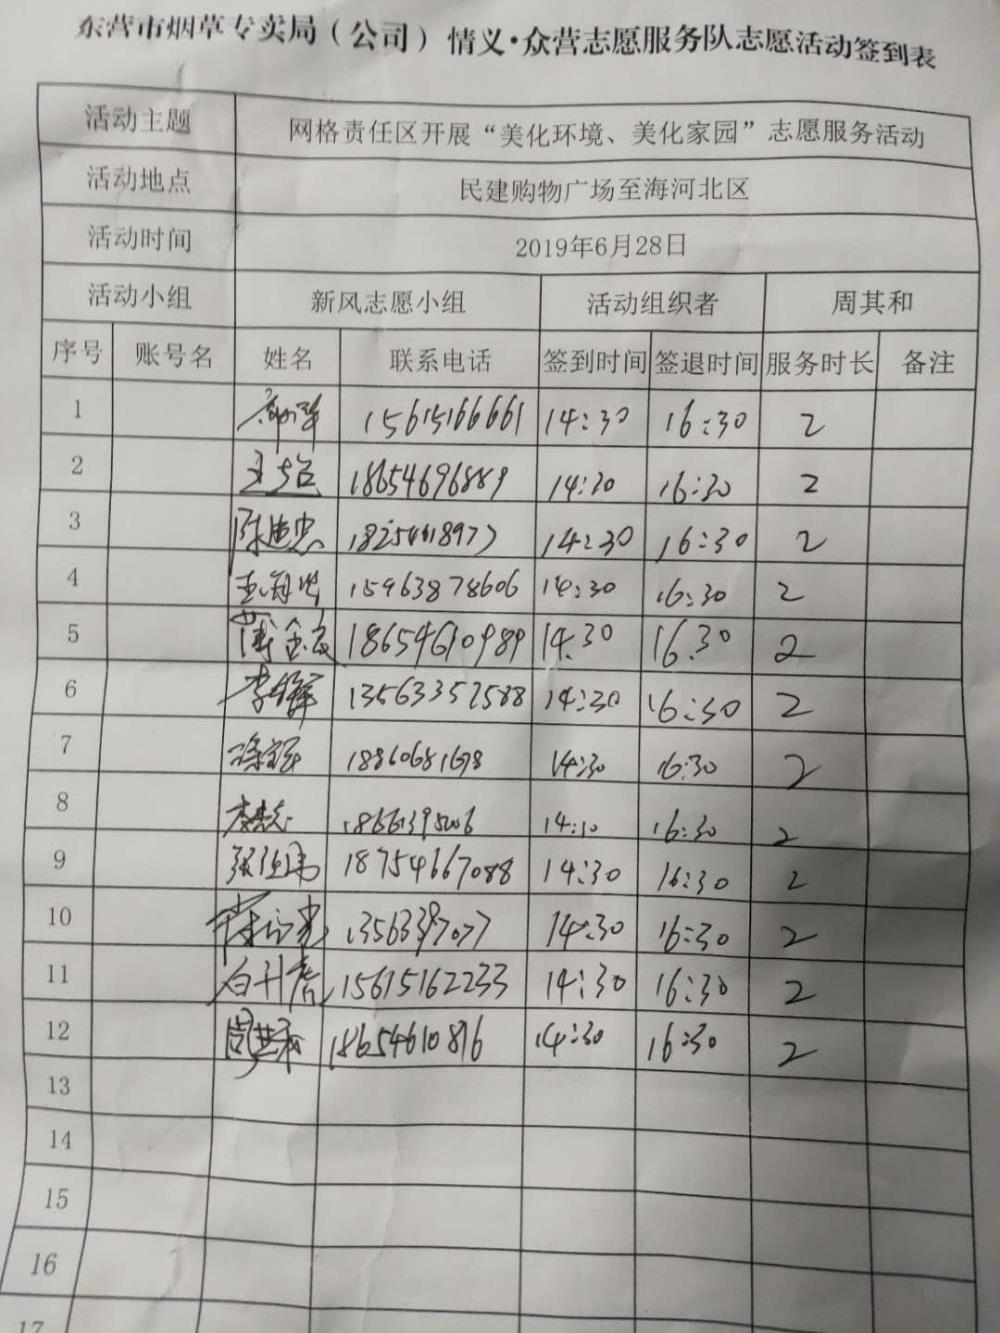 东营市烟草专卖局（公司）情义·众营志愿服务队志愿活动签到表
活动主题 网格责任区开展“美化环境、美化家园”志愿服务活动
活动地点 民建购物广场至海河北区
活动时间 2019年6月28日
活动小组 新风志愿小组 活动组织者 周其和
序号 账号名 姓名 联系电话 签到时间 签退时间 服务时长 备注
1 15615166661 14:30 16:30 2
2 18654696889 14:30 16:30 2
3 陈建忠 14:30 16:30 2
4 15963878606 14:30 16:30 2
5 18654610989 14:30 16:30 2
6 13563352588 14:30 16:30 2
7 14:30 16:30 2
8 14:30 16:30 2
9 18754667088 14:30 16:30 2
10 14:30 16:30 2
11 15615162233 14:30 16:30 2
12 周其和 14:30 16:30 2
13
14
15
16
17